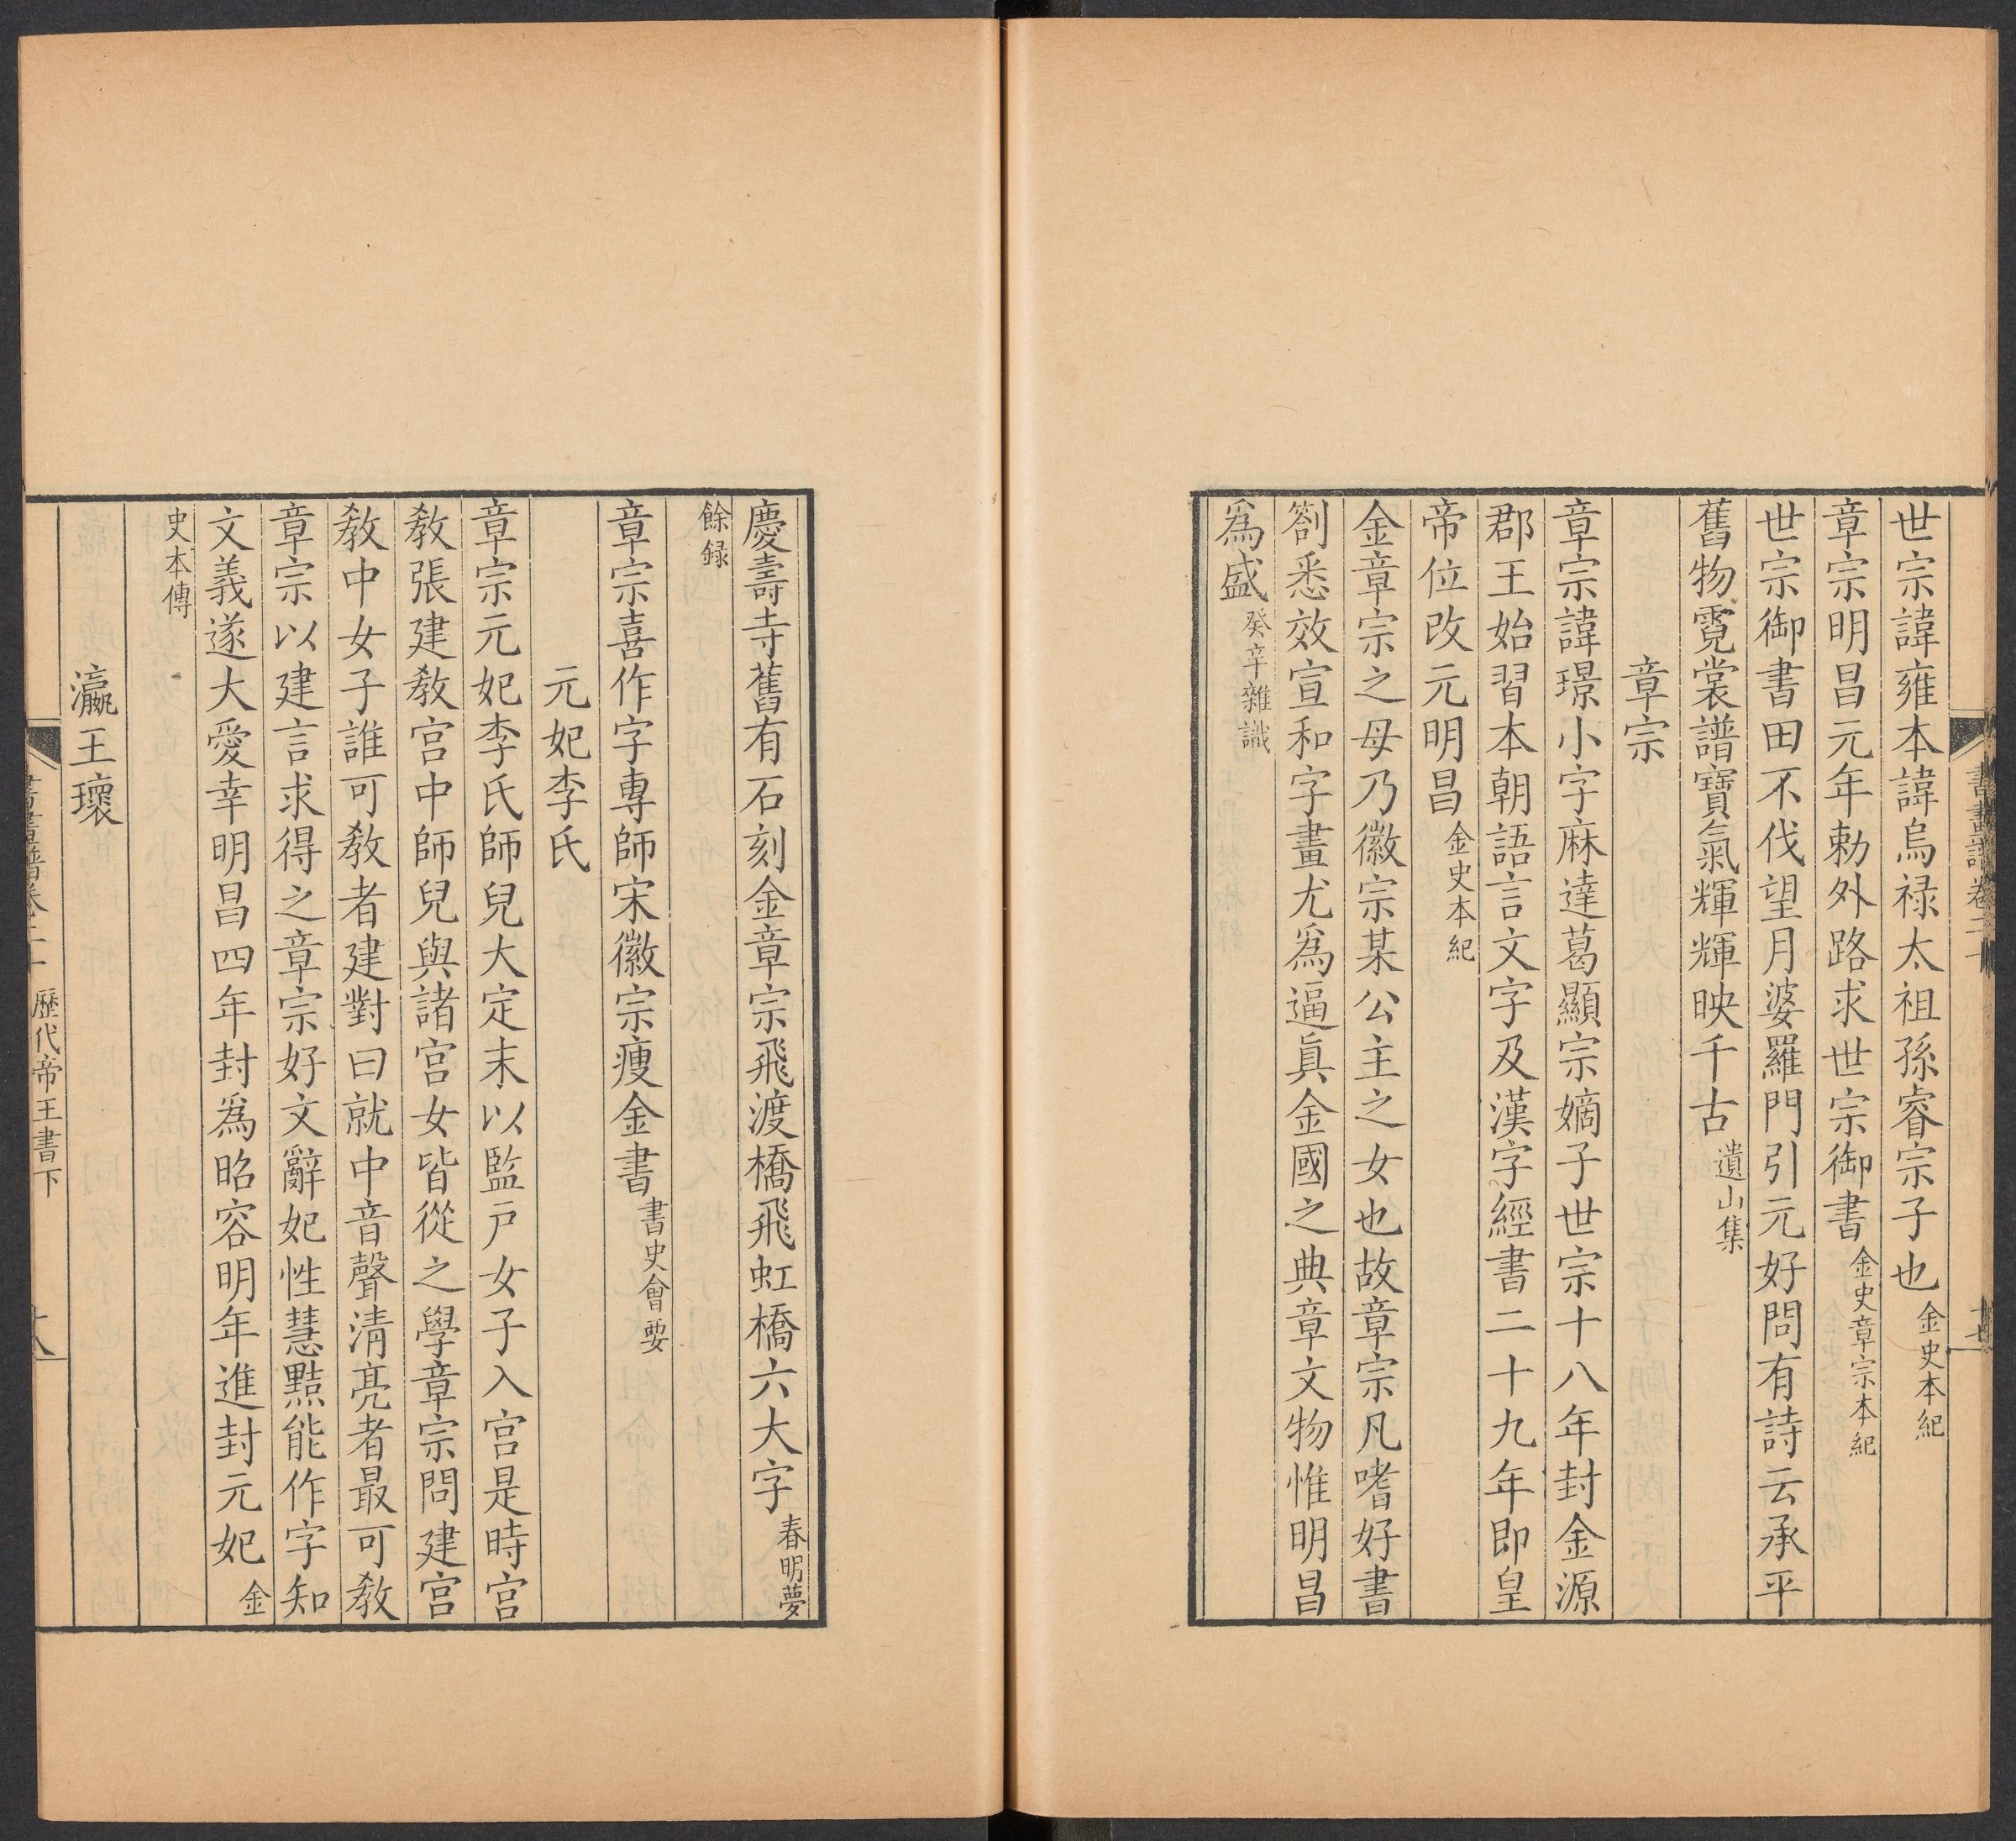 世宗諱雍本諱烏禄太祖孫睿宗子也金史本紀
章宗明昌元年勅外路求世宗御書金史章宗本紀
世宗御書田不伐望月婆羅門引元好問有詩云承平
舊物霓裳譜寶氣輝輝映千古遺山集
章宗
章宗諱璟小字麻達葛顯宗嫡子世宗十八年封金源
郡王始習本朝語言文字及漢字經書二十九年即皇
帝位改元明昌金史本紀
金章宗之母乃徽宗某公主之女也故章宗凡嗜好書
劄悉效宣和字畫尤爲逼眞金國之典章文物惟明昌
爲盛癸辛雜識
慶壽寺舊有石刻金章宗飛渡橋飛虹橋六大字春明夢
餘録
章宗喜作字專師宋徽宗瘦金書書史會要
元妃李氏
章宗元妃李氏師兒大定末以監戸女子入宫是時宫
教張建教宫中師兒與諸宫女皆從之學章宗問建宫
教中女子誰可教者建對曰就中音聲清亮者最可教
章宗以建言求得之章宗好文辭妃性慧黠能作字知
文義遂大愛幸明昌四年封爲昭容明年進封元妃金
史本傳
瀛王瓌
歷代帝王書下
十八